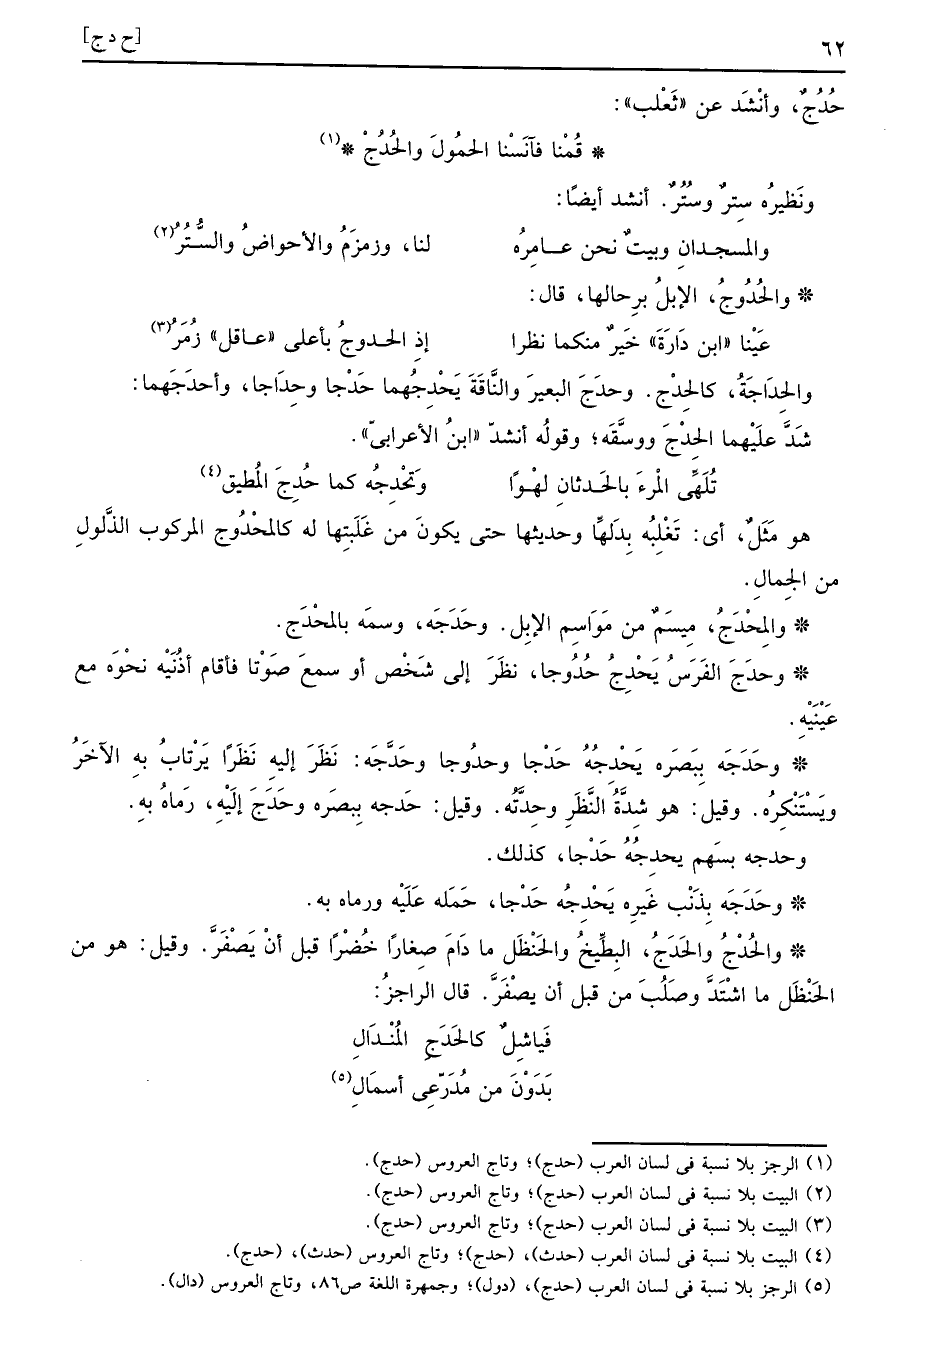 ٦٢ [ح د ج]
حُدُجٌ، وأنْشَد عن «ثَعْلب»:
* قُمْنا فآنَسْنا الحمُولَ والحُدُجْ *(١)
ونَظيرُه سترٌ وسُتُرٌ. أنشد أيضًا:
والمسجدانِ وبيتٌ نحن عـامرُه لنا، وزمزَمُ والأحواضُ والسُّتُرُ(٢)
* والحُدُوجُ، الإبلُ برِحالها، قال:
عَيْنا «ابن دَارَةَ» خَيرٌ منكما نظرا إذِ الحـدوجُ بأعلى «عـاقل» زُمَرُ(٣)
والحِدَاجَةُ، كالحِدْج. وحدَجَ البعيرَ والنَّاقَةَ يَحْدجُهما حَدْجا وحِدَاجا، وأحدَجَهما:
شَدَّ علَيْهما الحِدْجَ ووسَّقَه؛ وقولُه أنشدّ «ابنُ الأعرابىّ».
تُلَهِّى المرْءَ بالحَدثانِ لهْوًا وَتَحْدِجهُ كما حُدِجَ المُطيق(٤)
هو مَثَلٌ، أى: تَغْلِبُه بِدَلهَّا وحديثها حتى يكونَ من غَلَبَتِها له كالمحْدُوج المركوب الذَّلولِ
من الجِمالِ.
* والمِحْدَجُ، ميسَمٌ من مَوَاسِم الإبل. وحَدَجَه، وسمَه بالمحْدَج.
* وحدَجَ الفَرَسُ يَحْدِجُ حُدُوجا، نظَرَ إلى شَخْص أو سمعَ صَوْتا فأقام أذُنَيْه نحْوَه مع
عَيْنَيْهِ.
* وحَدَجَه بِبَصَره يَحْدِجُهُ حَدْجا وحدُوجا وحَدَّجَه: نَظَرَ إليهِ نَظَرًا يَرْتابُ بهِ الآخَرُ
ويَسْتَنْكِرُه. وقيل: هو شدَّةُ النَّظَرِ وحدَّتُه. وقيل: حَدجه ببصَره وحَدَجَ إلَيْهِ، رَماهُ بهِ.
وحدجه بسَهم يحدِجُهُ حَدْجا، كذلك.
* وحَدَجَه بِذَنْب غَيرِه يَحْدِجُه حَدْجا، حَمَله عَلَيْه ورماه به.
* والحُدْجُ والحَدَجُ، البطِّيخُ والحَنْظَل ما دَامَ صِغارًا خُضْرًا قبل أنْ يَصْفَرَّ. وقيل: هو من
الحَنْظَل ما اشْتَدَّ وصَلُبَ من قبل أن يصْفَرَّ. قال الراجزُ:
فَياشِلٌ كالحَدَجِ المُنْـدَالِ
بَدَوْنَ من مُدَرّعِى أسمَالِ(٥)
(١) الرجز بلا نسبة فى لسان العرب (حدج)؛ وتاج العروس (حدج).
(٢) البيت بلا نسبة فى لسان العرب (حدج)؛ وتاج العروس (حدج).
(٣) البيت بلا نسبة فى لسان العرب (حدج)؛ وتاج العروس (حدج).
(٤) البيت بلا نسبة فى لسان العرب (حدث)، (حدج)؛ وتاج العروس (حدث)، (حدج).
(٥) الرجز بلا نسبة فى لسان العرب (حدج)، (دول)؛ وجمهرة اللغة ص٨٦، وتاج العروس (دال).